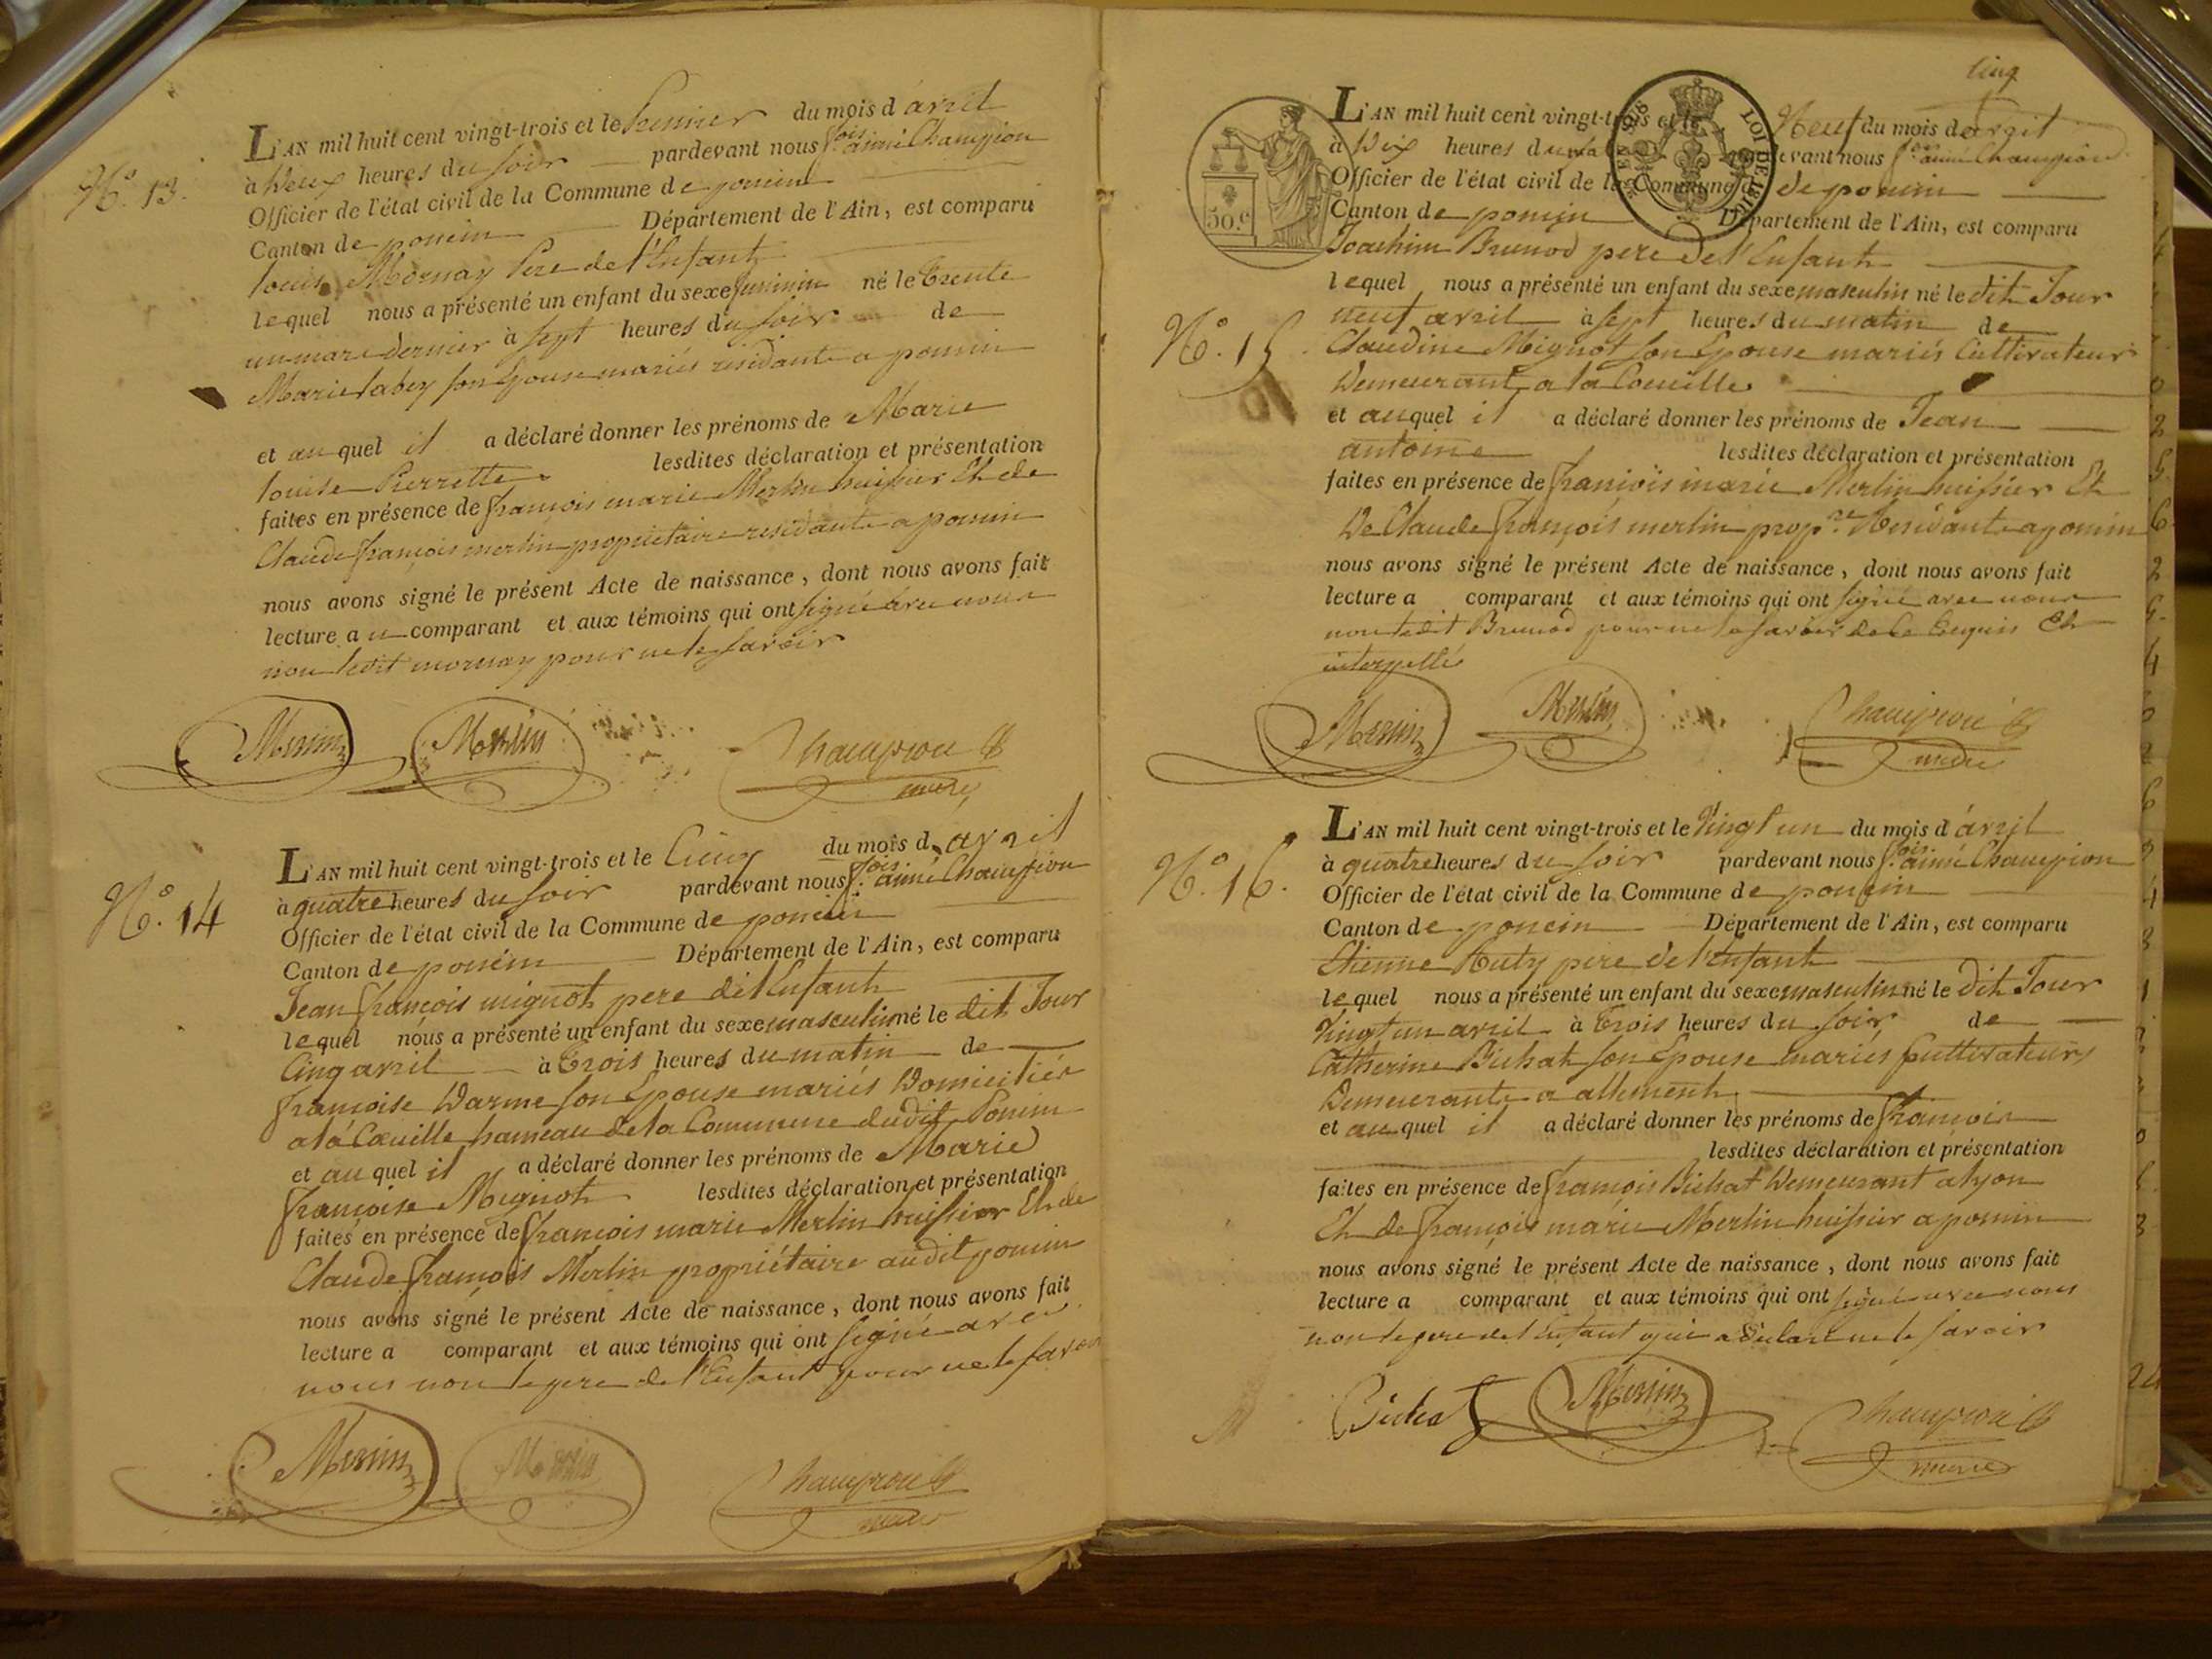 N.o 13.
L'AN mil huit cent vingt-trois et le Premier du mois d'avril
à Deux heures du soir pardevant nous f.ois aimé Champion
Officier de l'état civil de la Commune de poncin
Canton de poncin Département de l'Ain, est comparu
louis Mornay Pere de l'Enfant
lequel nous a présenté un enfant du sexe feminin né le Trente
un mars dernier à sept heures du soir de
Marie labey son Epouse mariés residants a poncin
et au quel il a déclaré donner les prénoms de Marie
louise Pierrette lesdites déclaration et présentation
faites en présence de françois marie Merlin huissier Et de
Claude françois merlin propriétaire residants a poncin
nous avons signé le présent Acte de naissance, dont nous avons fait
lecture au comparant et aux témoins qui ont signé avec nous
non ledit mornay pour ne le savoir
Merlin Merlin Champion
maire
N.o 14
L'AN mil huit cent vingt-trois et le Cinq du mois d'avril
à quatre heures du soir pardevant nous f.ois aimé Champion
Officier de l'état civil de la Commune de poncin
Canton de poncin Département de l'Ain, est comparu
Jean françois mignot pere de l'Enfant
lequel nous a présenté un enfant du sexe masculin né le dit Jour
Cinq avril à Trois heures du matin de
françoise Darme son Epouse mariés Domiciliés
a la Coeuille hameau de la Commune dudit Poncin
et au quel il a déclaré donner les prénoms de Marie
françoise Mignot lesdites déclaration et présentation
faites en présence de françois marie Merlin huissier Et de
Claude françois Merlin propriétaire audit poncin
nous avons signé le présent Acte de naissance, dont nous avons fait
lecture a comparant et aux témoins qui ont signé avec
nous non le pere de l'Enfant pour ne le savoir
Merlin Merlin Champion
maire
cinq
50.c
EN SUS LOI DE 1816
N.o 15
L'AN mil huit cent vingt-trois et le Neuf du mois d'avril
à Dix heures du pardevant nous f.ois aimé Champion
Officier de l'état civil de la Commune de poncin
Canton de poncin Département de l'Ain, est comparu
Joachim Brunod pere de l'Enfant
lequel nous a présenté un enfant du sexe masculin né le dit Jour
neuf avril à sept heures du matin de
Claudine Mignot son Epouse mariés Cultivateurs
Demeurants a la Coeuille
et au quel il a déclaré donner les prénoms de Jean
antoine lesdites déclaration et présentation
faites en présence de françois marie Merlin huissier Et
De Claude françois merlin prop.re Residants a poncin
nous avons signé le présent Acte de naissance, dont nous avons fait
lecture a comparant et aux témoins qui ont signé avec nous
non ledit Brunod pour ne le savoir de ce Enquis Et
interpellé
Merlin Merlin Champion
maire
N.o 16.
L'AN mil huit cent vingt-trois et le Vingt un du mois d'avril
à quatre heures du soir pardevant nous f.ois aimé Champion
Officier de l'état civil de la Commune de poncin
Canton de poncin Département de l'Ain, est comparu
Etienne Ruty pere de l'Enfant
lequel nous a présenté un enfant du sexe masculin né le dit Jour
Vingt un avril à Trois heures du soir de
Catherine Bichat son Epouse mariés Cultivateurs
Demeurants a allement
et au quel il a déclaré donner les prénoms de françois
lesdites déclaration et présentation
faites en présence de françois Bichat Demeurant a lyon
Et de françois marie Merlin huissier a poncin
nous avons signé le présent Acte de naissance, dont nous avons fait
lecture a comparant et aux témoins qui ont signé avec nous
non le pere de l'Enfant qui a Déclaré ne le savoir
Bichat Merlin Champion
maire